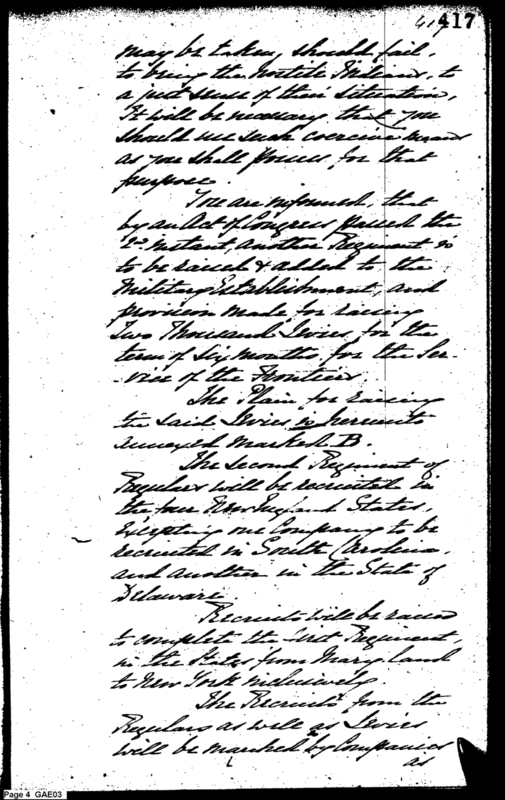 417 417
may be taken, should fail,
to bring the hostile Indians, to
a just sense of their situation,
It will be necessary that you
should use such coercive means
as you shall possess, for that
purpose.
You are informed, that
by an Act of Congress passed the
2d instant, another Regiment is
to be raised & added to the
Military Establishment, and
provision made, for raising
Two Thousand Levies, for the
term of Six months, for the Ser-
-vice of the Frontiers.
The Plan for raising
the said Levies is hereunto
annexed marked B.
The Second Regiment of
Regulars will be recruited in
the four New England States,
Excepting one Company to be
recruited in South Carolina,
and another in the State of
Delaware.
Recruits will be raised
to complete the first Regiment,
in the States from Maryland
to New York inclusively.
The Recruits from the
Regulars as well as Levies
will be marched by Companies
as
Page 4 GAE03